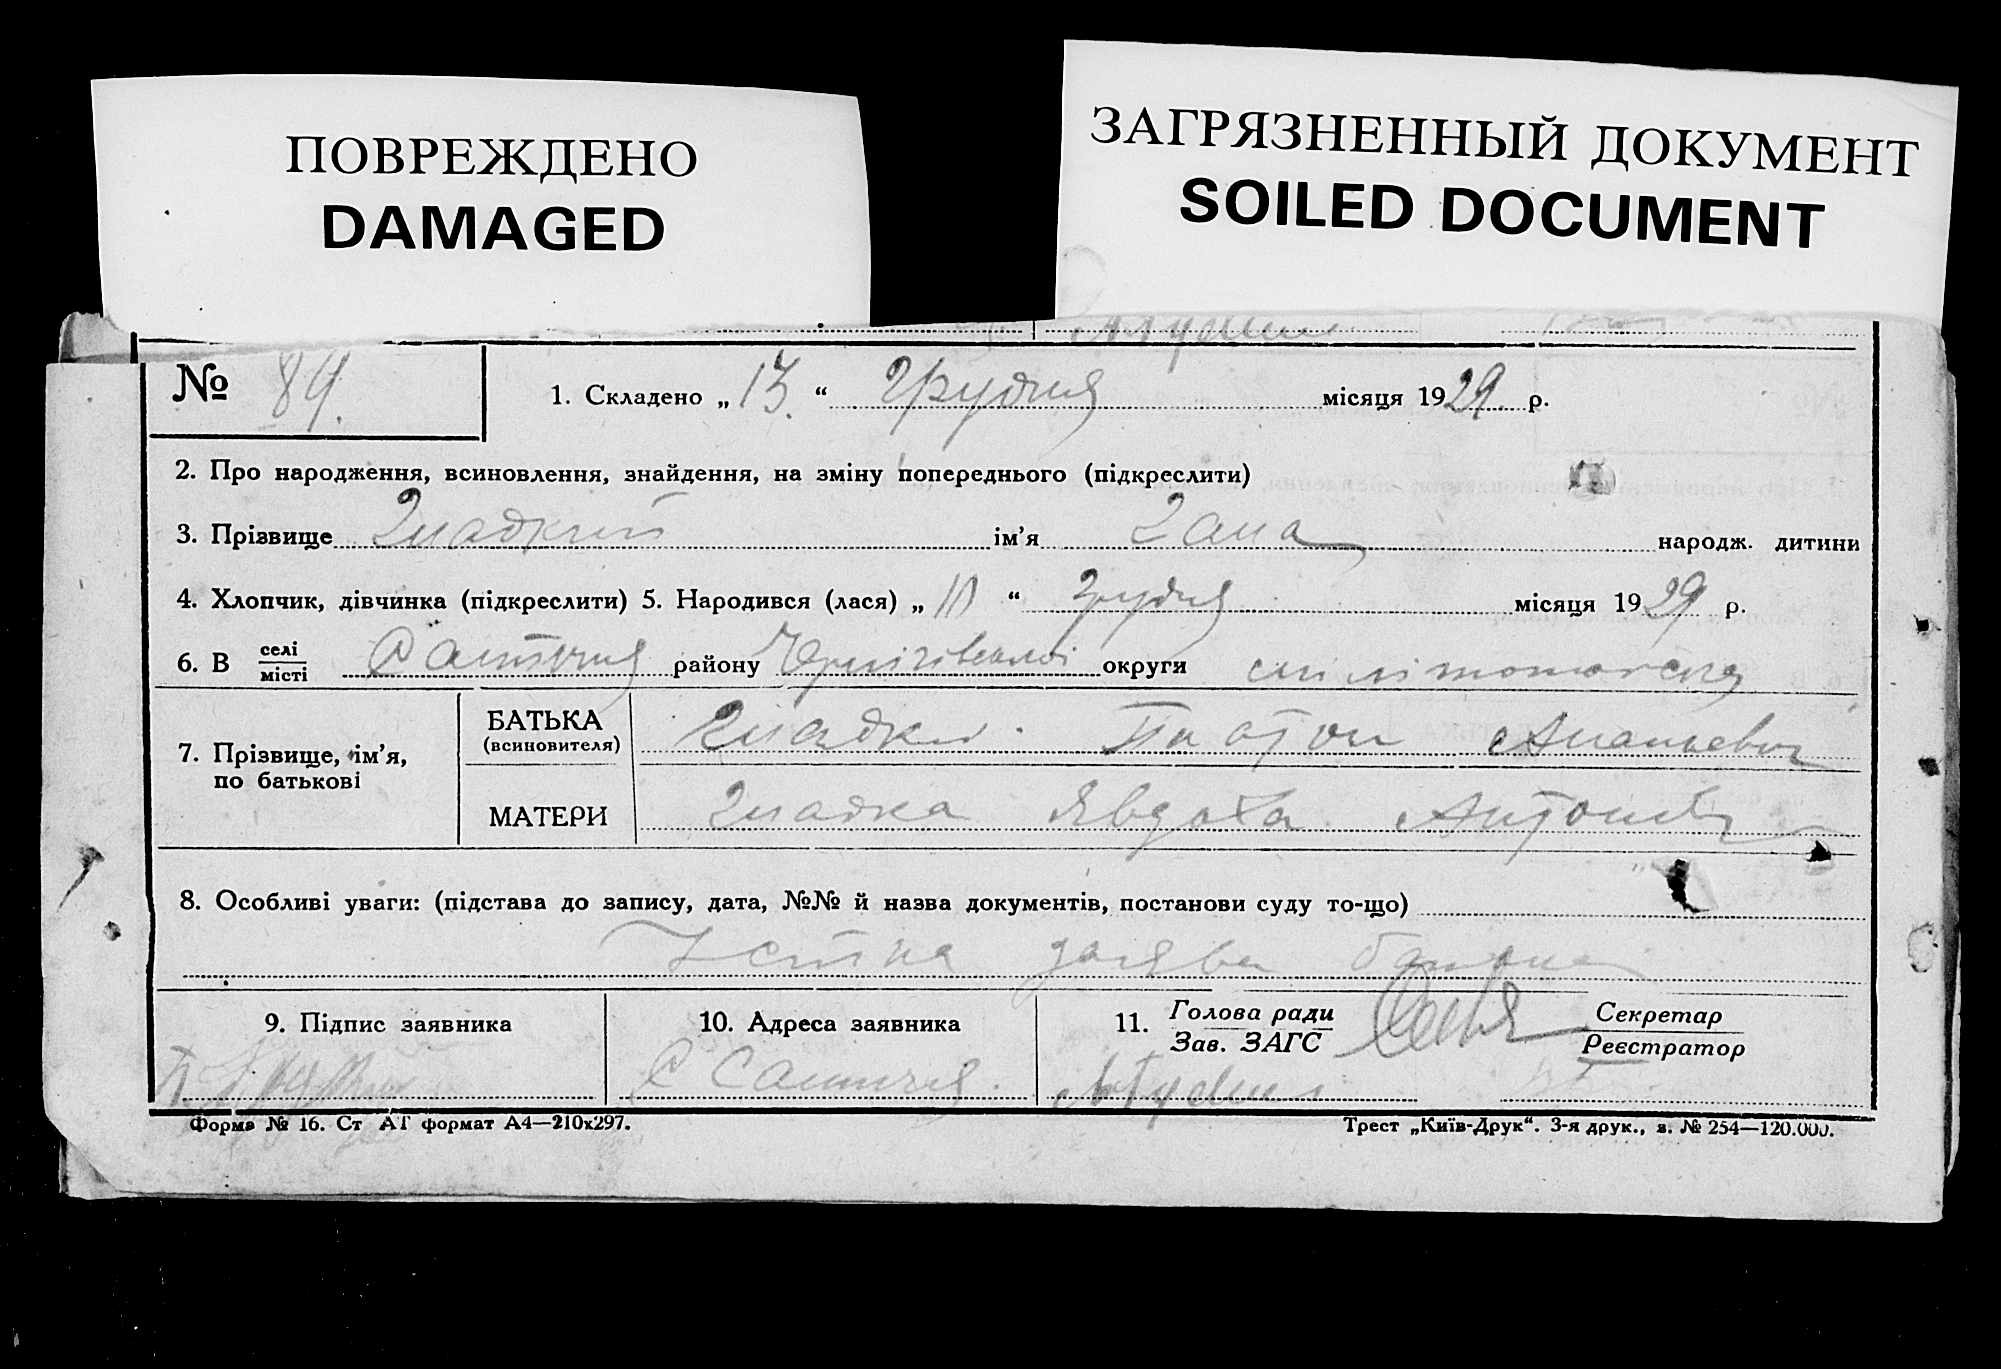 ПОВРЕЖДЕНО
DAMAGED
ЗАГРЯЗНЕННЫЙ ДОКУМЕНТ
SOILED DOCUMENT
№ 89. 1. Складено „13.“ Грудня місяця 1929 р.
2. Про народження, всиновлення, знайдення, на зміну попереднього (підкреслити)
3. Прізвище Гладкий ім’я народж. дитини
4. Хлопчик, дівчинка (підкреслити) 5. Народився (лася) „10“ Грудня місяця 1929 р.
6. В селі місті району округи
7. Прізвище, ім’я, по батькові
БАТЬКА (всиновителя) Платон Ананьевич
МАТЕРИ Гладка Явдоха
8. Особливі уваги: (підстава до запису, дата, №№ й назва документів, постанови суду то-що)
Устна заява батька
9. Підпис заявника 10. Адреса заявника 11. Голова ради Зав. ЗАГС Секретар Реєстратор
Форма № 16. Ст АТ формат А4—210х297. Трест „Київ-Друк“. 3-я друк., з. № 254—120.000.